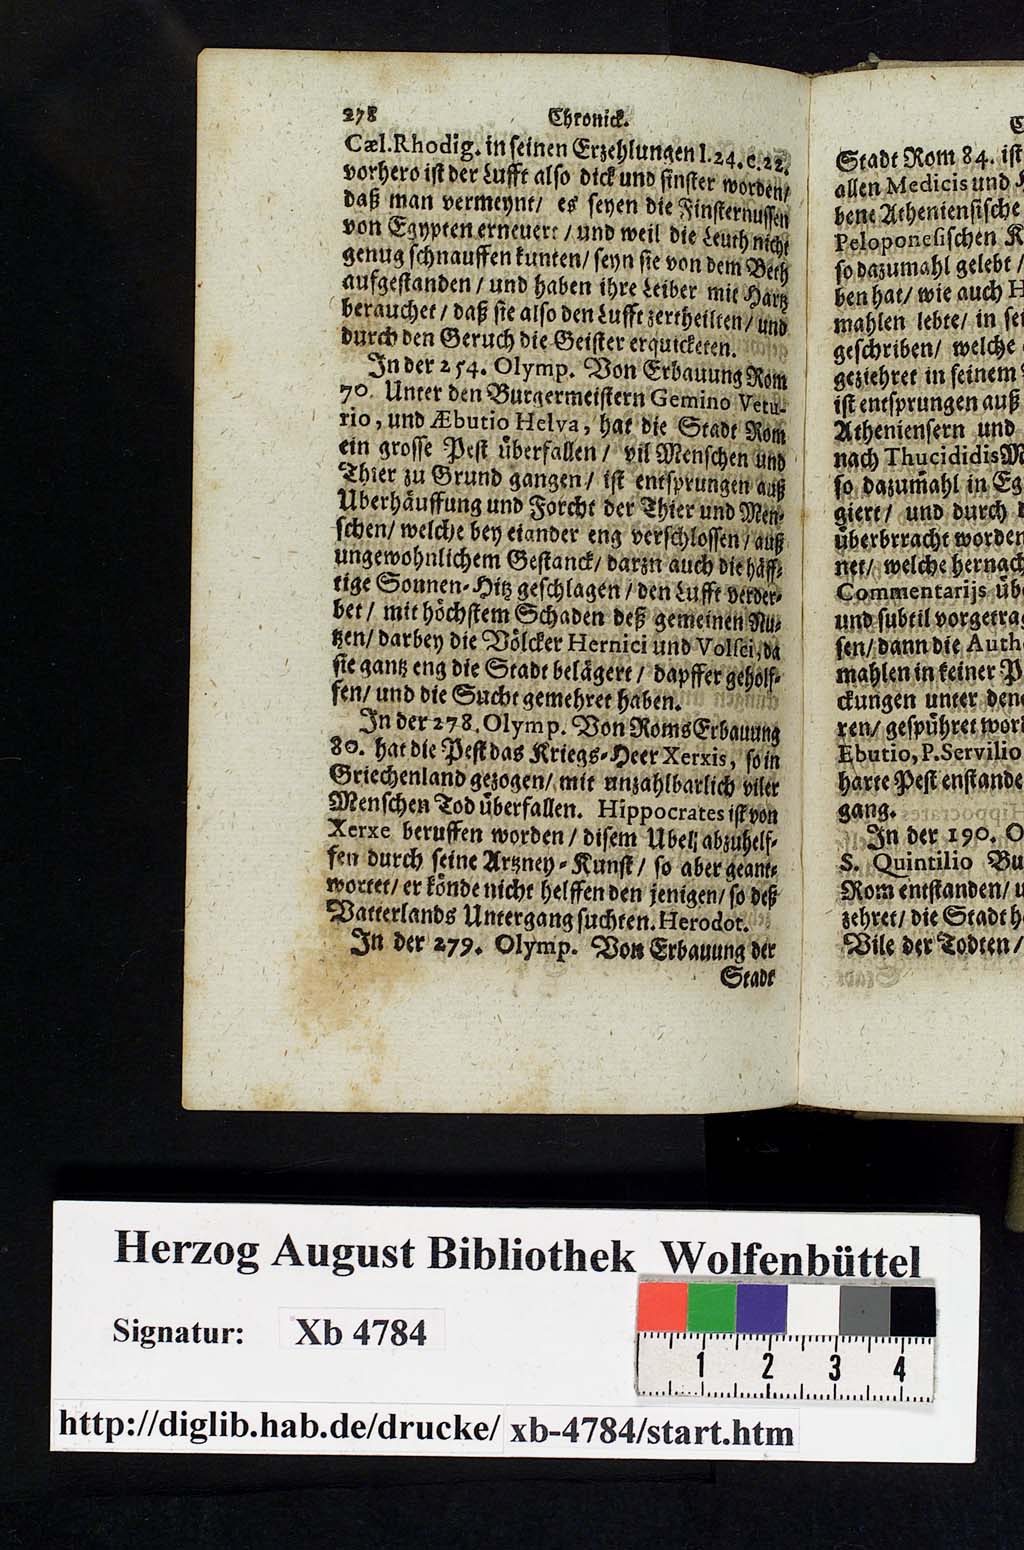 278 Chronick.
Cæl. Rhodig. in seinen Erzehlungen l. 24. c. 22.
vorhero ist der Lufft also dick und finster worden/
daß man vermeynt/ es seyen die Finsternussen
von Egypten erneuert / und weil die Leuth nicht
genug schnauffen kunten/ seyn sie von dem Beth
aufgestanden / und haben ihre Leiber mit Hartz
berauchet / daß sie also den Lufft zertheilten/ und
durch den Geruch die Geister erquicketen.
In der 254. Olymp. Von Erbauung Rom
70. Unter den Burgermeistern Gemino Vetu-
rio, und Æbutio Helva, hat die Stadt Rom
ein grosse Pest überfallen / vil Menschen und
Thier zu Grund gangen/ ist entsprungen auß
Uberhäuffung und Forcht der Thier und Men-
schen/ welche bey eiander eng verschlossen/ auß
ungewohnlichem Gestanck/ darzn auch die häff-
tige Sonnen-Hitz geschlagen / den Lufft verder-
bet / mit höchstem Schaden deß gemeinen Nu-
tzen/ darbey die Völcker Hernici und Volsci, da
sie gantz eng die Stadt belägert / dapffer geholf-
fen/ und die Sucht gemehret haben.
In der 278. Olymp. Von Roms Erbauung
80. hat die Pest das Kriegs-Heer Xerxis, so in
Griechenland gezogen/ mit unzahlbarlich viler
Menschen Tod überfallen. Hippocrates ist von
Xerxe beruffen worden / disem Ubel abzuhelf-
fen durch seine Artzney-Kunst / so aber geant-
wortet/ er könde nicht helffen den jenigen/ so deß
Vatterlands Untergang suchten. Herodot.
In der 279. Olymp. Von Erbauung der
Stadt
Stadt Rom 84. ist
allen Medicis und
bene Atheniensische
Peloponesischen
so dazumahl gelebt /
ben hat/ wie auch
mahlen lebte/ in
geschriben/ welche
geziehret in seinem
ist entsprungen auß
Atheniensern und
nach Thucididis
so dazumahl in
giert/ und durch
überbrracht worden
net/ welche hernach
Commentarijs
und subtil
sen/ dann die
mahlen in keiner
ckungen unter
ren/ gespühret
Ebutio, P. Servilio
harte Pest
gang.
In der 190.
S. Quintilio
Rom entstanden/
zehret/ die Stadt
Vile der Todten /
Herzog August Bibliothek Wolfenbüttel
Signatur: Xb 4784
1 2 3 4
http://diglib.hab.de/drucke/ xb-4784/start.htm